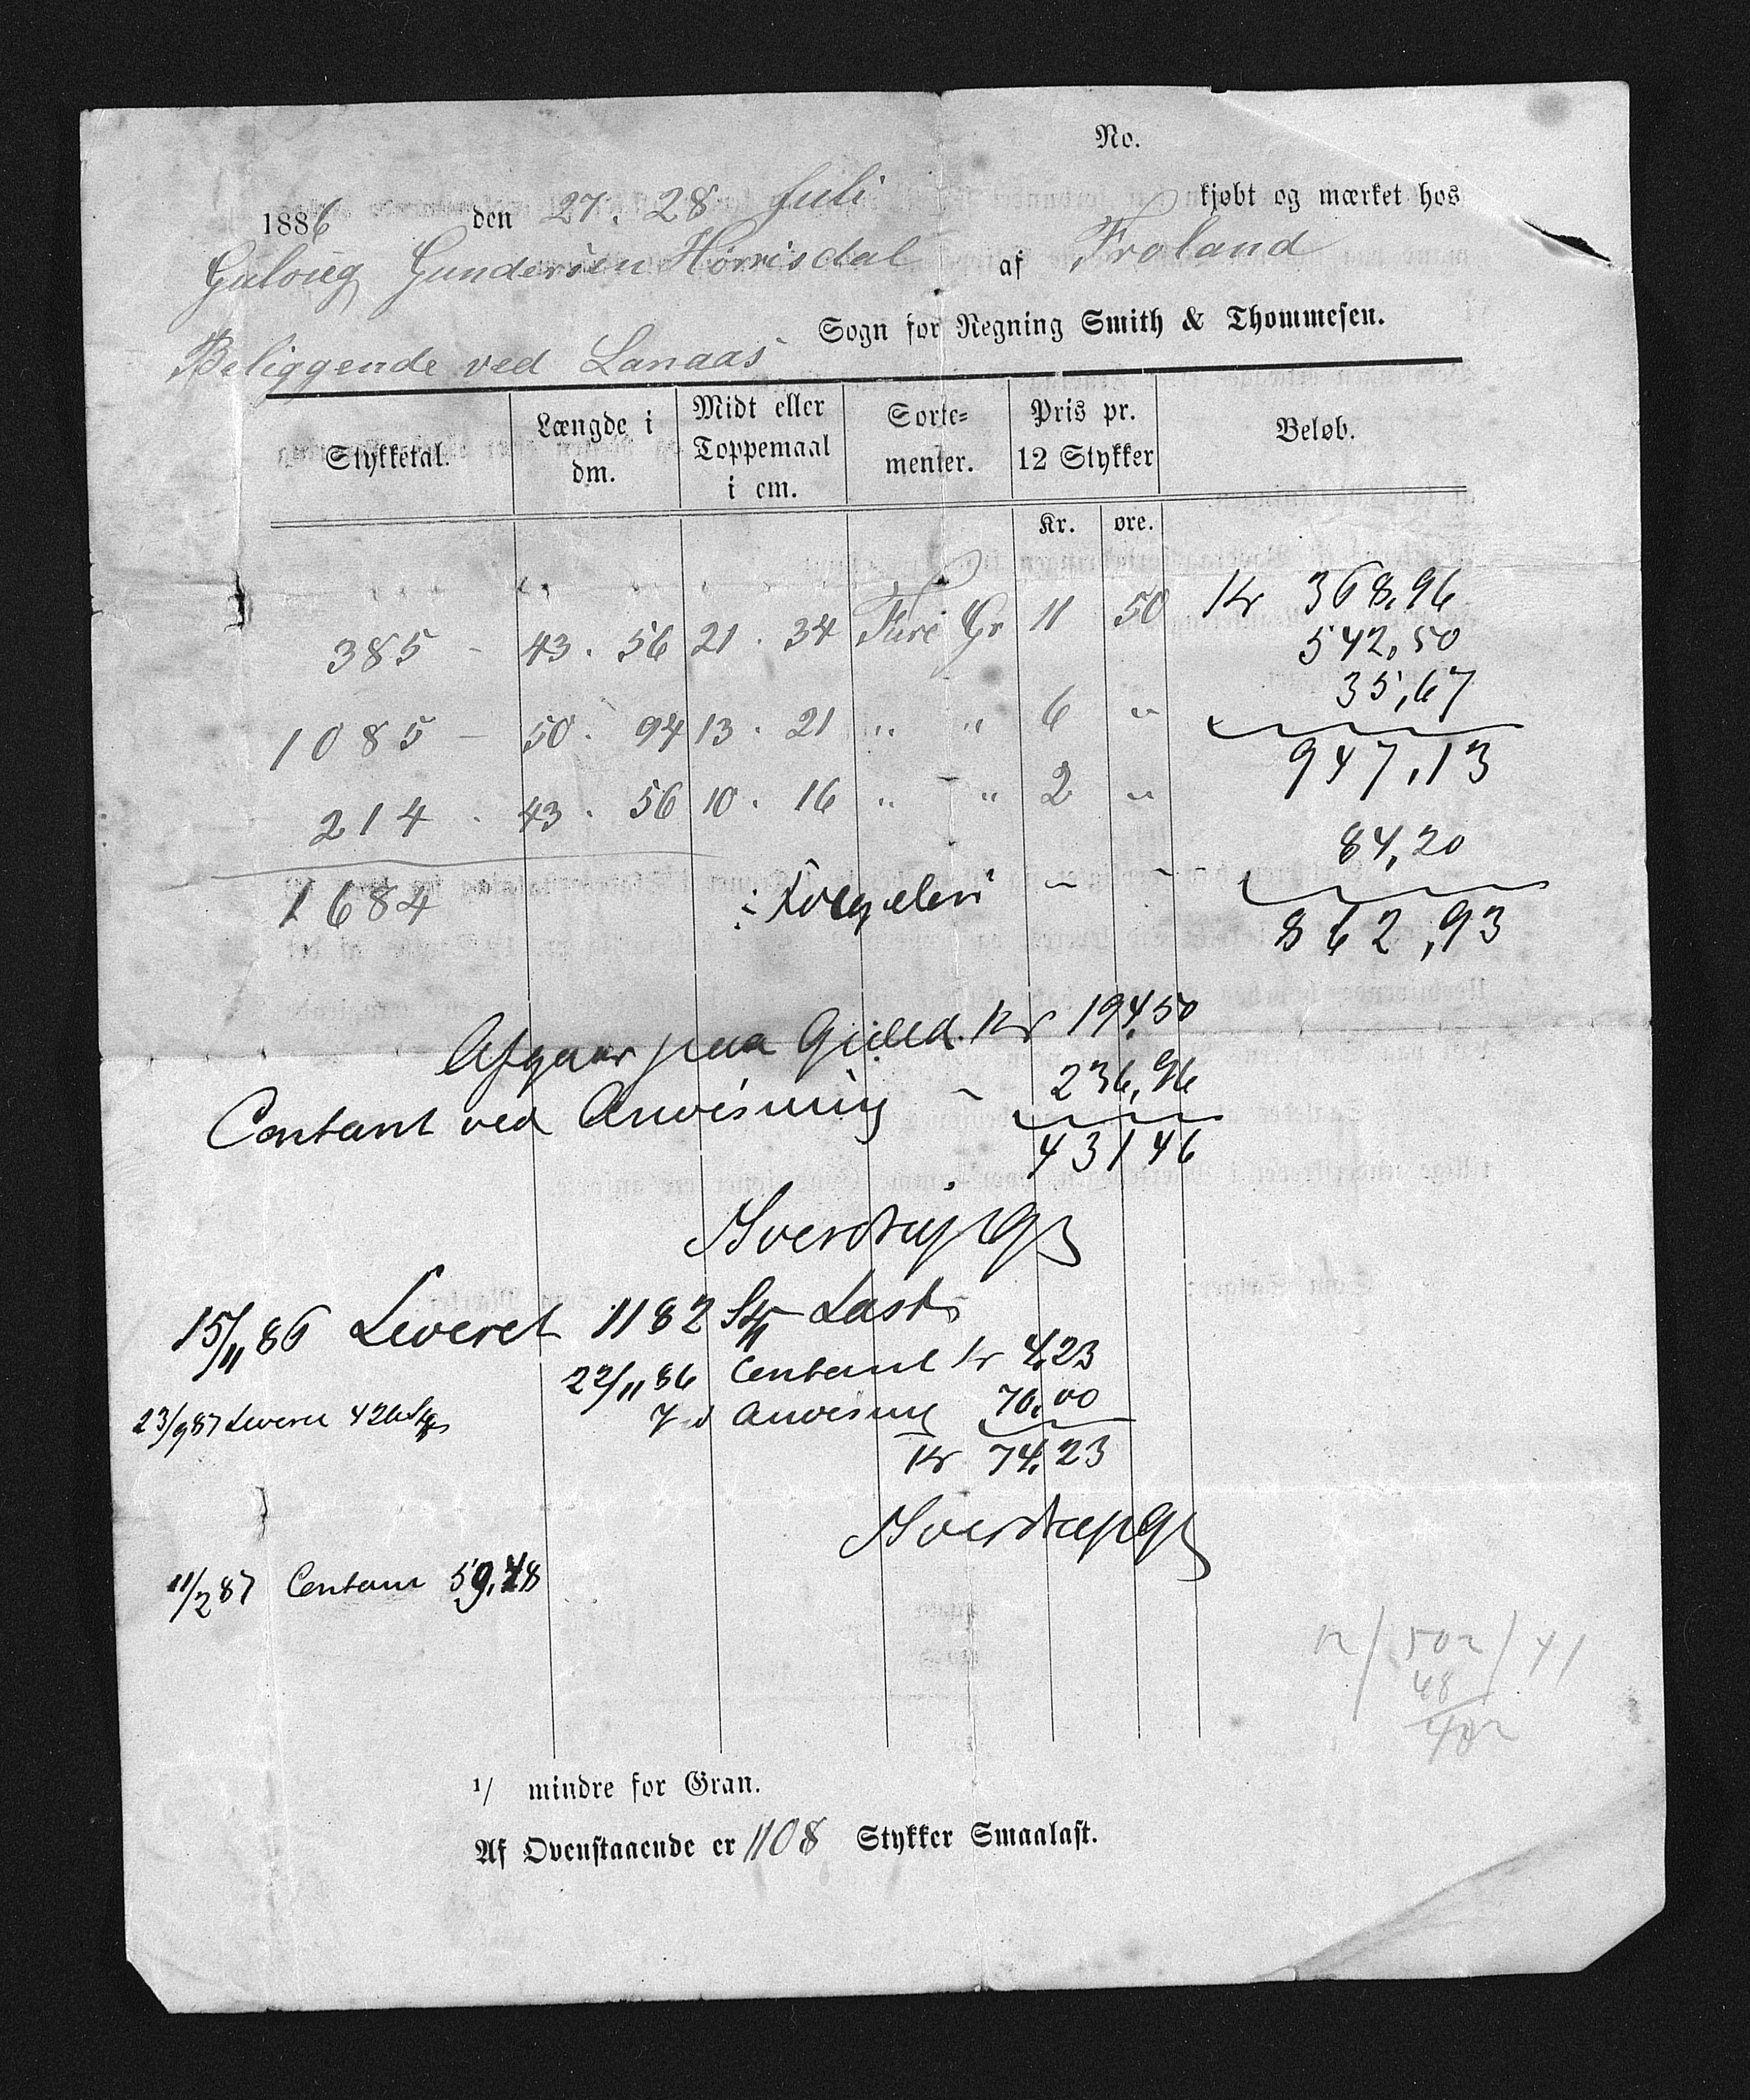 No.
1886 den 27. 28 Juli kjøbt og mærket hos
Guloug Gundersen Hørrisdal af Froland
Sogn for Regning Smith & Thommesen.
Beliggende ved Lanaas
Stykketal. Længde i dm. Midt eller Toppemaal i cm. Sorte-menter. Pris pr. 12 Stykker Beløb.
Kr. øre.
385 - 43. 56 21. 34 Furu Gr 11 50 Kr 368,96
542,50
35,67
1085 - 50. 94 13. 21 " " 6 " 947,13
214 . 43. 56 10. 16 " " 2 "
84,20
1684
862,93
Afgaar paa Gjeld. Kr 194,50
Contant ved Anvisning - 236,96
43146
15/11 86 Leveret 1182 Stk Last
22/11 86 Contant Kr 4,23
23/9 87 Leveret 426 Stk
7 d Anvisning 70,00
Kr 74,23
11/2 87 Contant 59,48
12/502/41
48
402
1/ mindre for Gran.
Af Ovenstaaende er 1108 Stykker Smaalast.